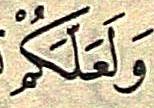 وَلَعَلَّكُمْ